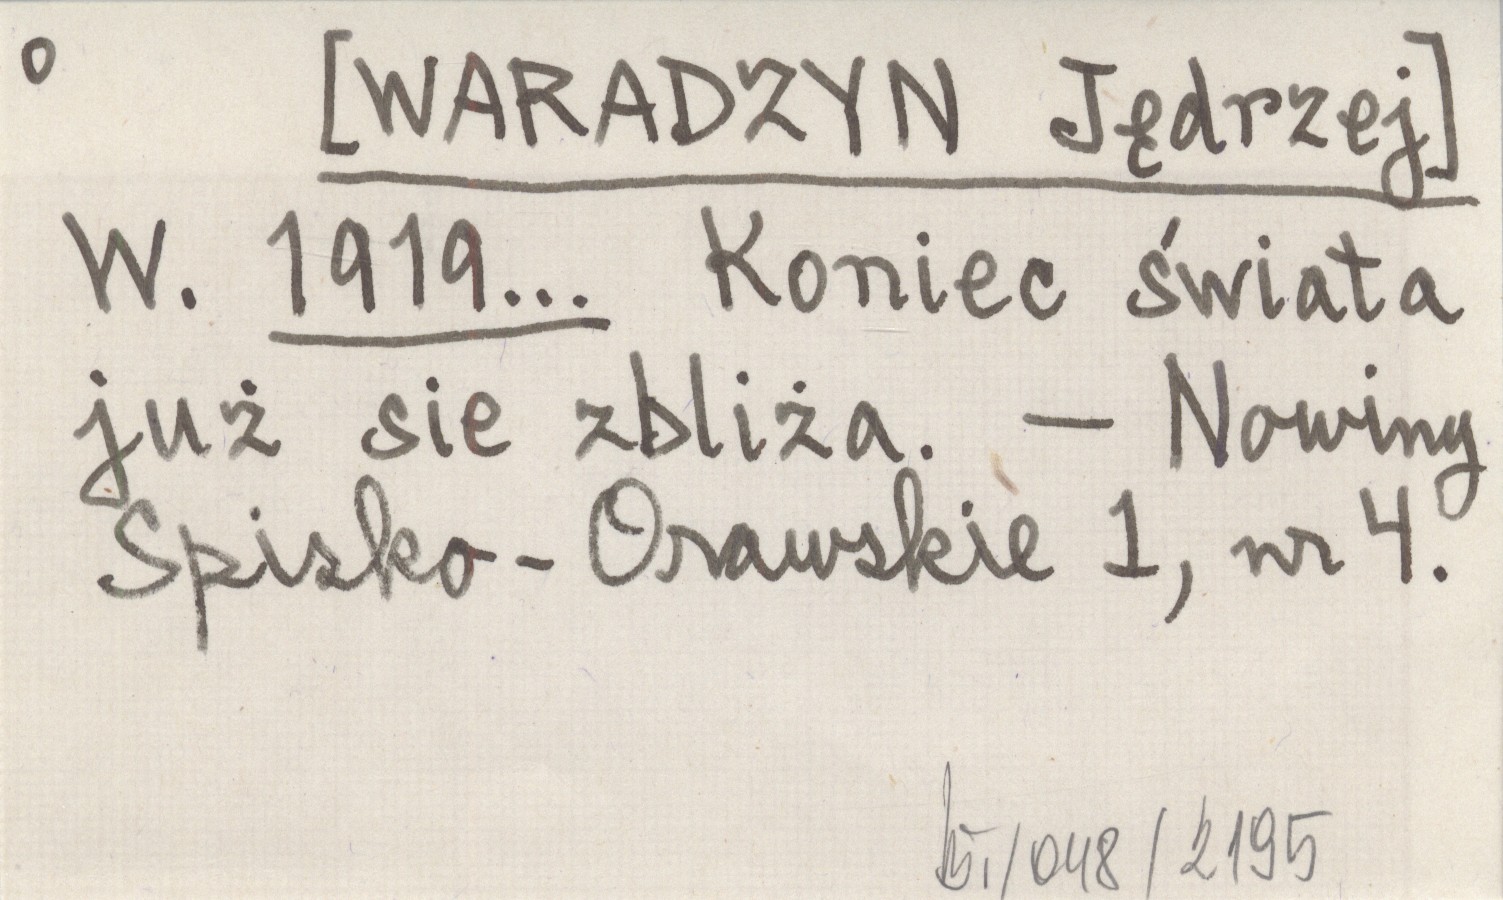 o [WARADZYN Jędrzej]
W. 1919... Koniec świata
już sie zbliża. — Nowiny
Spisko-Orawskie 1, nr 4.
/048/2195